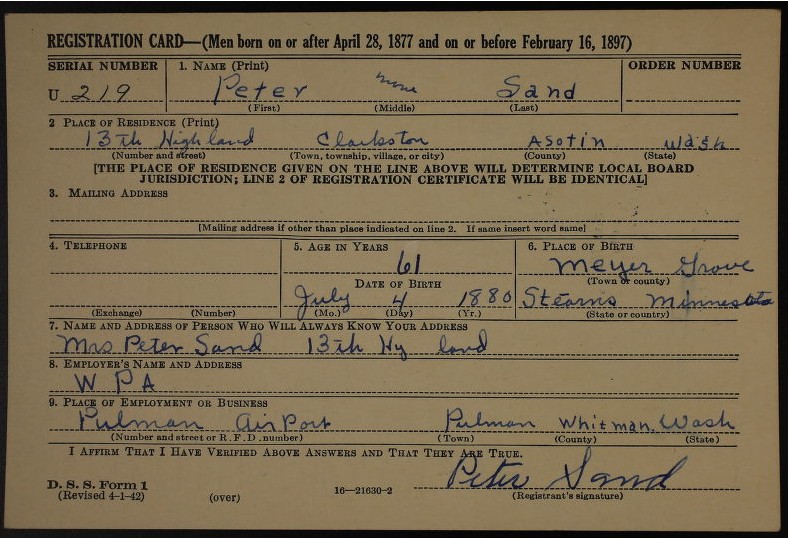 REGISTRATION CARD—(Men born on or after April 28, 1877 and on or before February 16, 1897)
SERIAL NUMBER 1. NAME (Print) ORDER NUMBER
U 219 Peter none Sand
(First) (Middle) (Last)
2 PLACE OF RESIDENCE (Print)
13th Highland Clarkston Asotin Wash
(Number and street) (Town, township, village, or city) (County) (State)
[THE PLACE OF RESIDENCE GIVEN ON THE LINE ABOVE WILL DETERMINE LOCAL BOARD
JURISDICTION; LINE 2 OF REGISTRATION CERTIFICATE WILL BE IDENTICAL]
3. MAILING ADDRESS
[Mailing address if other than place indicated on line 2. If same insert word same]
4. TELEPHONE 5. AGE IN YEARS 6. PLACE OF BIRTH
61 Meyer Grove
(Town or county)
DATE OF BIRTH
July 4 1880 Stearns Minnesota
(Exchange) (Number) (Mo.) (Day) (Yr.) (State or country)
7. NAME AND ADDRESS OF PERSON WHO WILL ALWAYS KNOW YOUR ADDRESS
Mrs Peter Sand 13th Hy land
8. EMPLOYER'S NAME AND ADDRESS
W P A
9. PLACE OF EMPLOYMENT OR BUSINESS
Pulman AirPort Pulman Whitman Wash
(Number and street or R. F. D. number) (Town) (County) (State)
I AFFIRM THAT I HAVE VERIFIED ABOVE ANSWERS AND THAT THEY ARE TRUE.
Peter Sand
D. S. S. Form 1
(Revised 4-1-42) (over) 16—21630-2 (Registrant's signature)